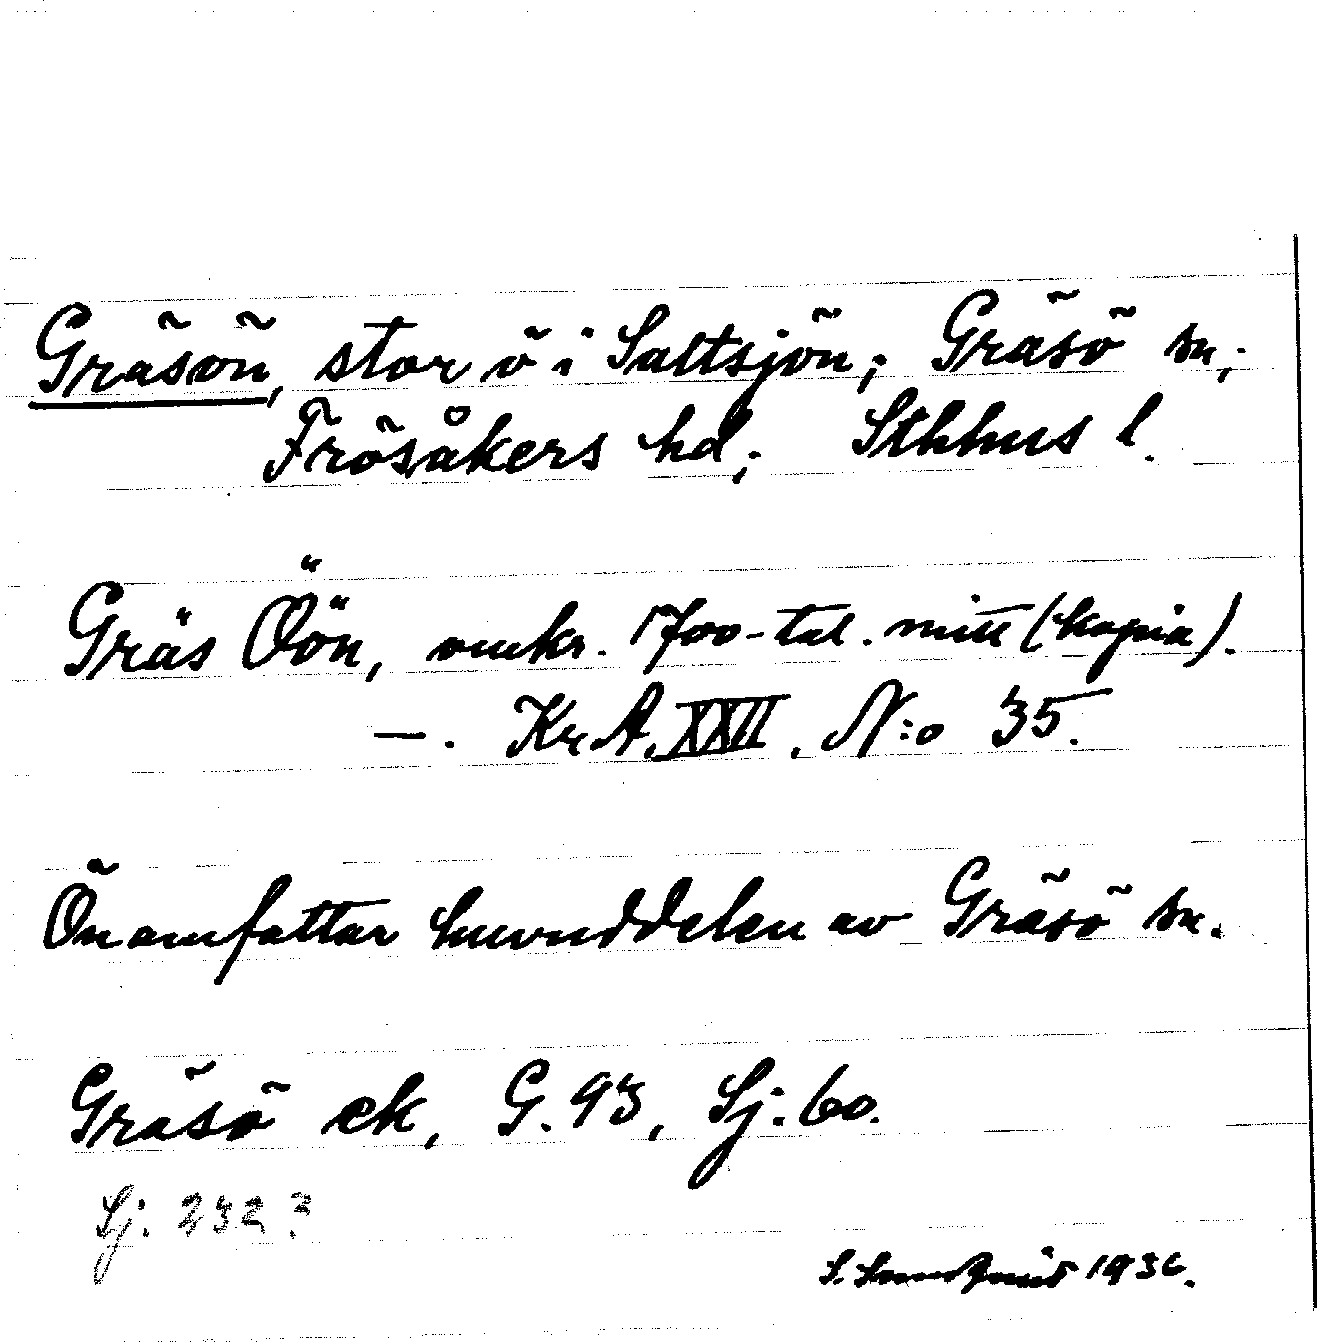 Gräsön, stor ö i Saltsjön; Gräsö sn;
Frösåkers hd; Sthhus l.
Gräs Öön, omkr. 1700-tal. mitt (kopia).
—. Kr.A. XXII. N:o 35.
Ön omfattar huvuddelen av Gräsö sn.
Gräsö ek, G. 93, Sj: 60.
Sj. 232?
S. 1936.